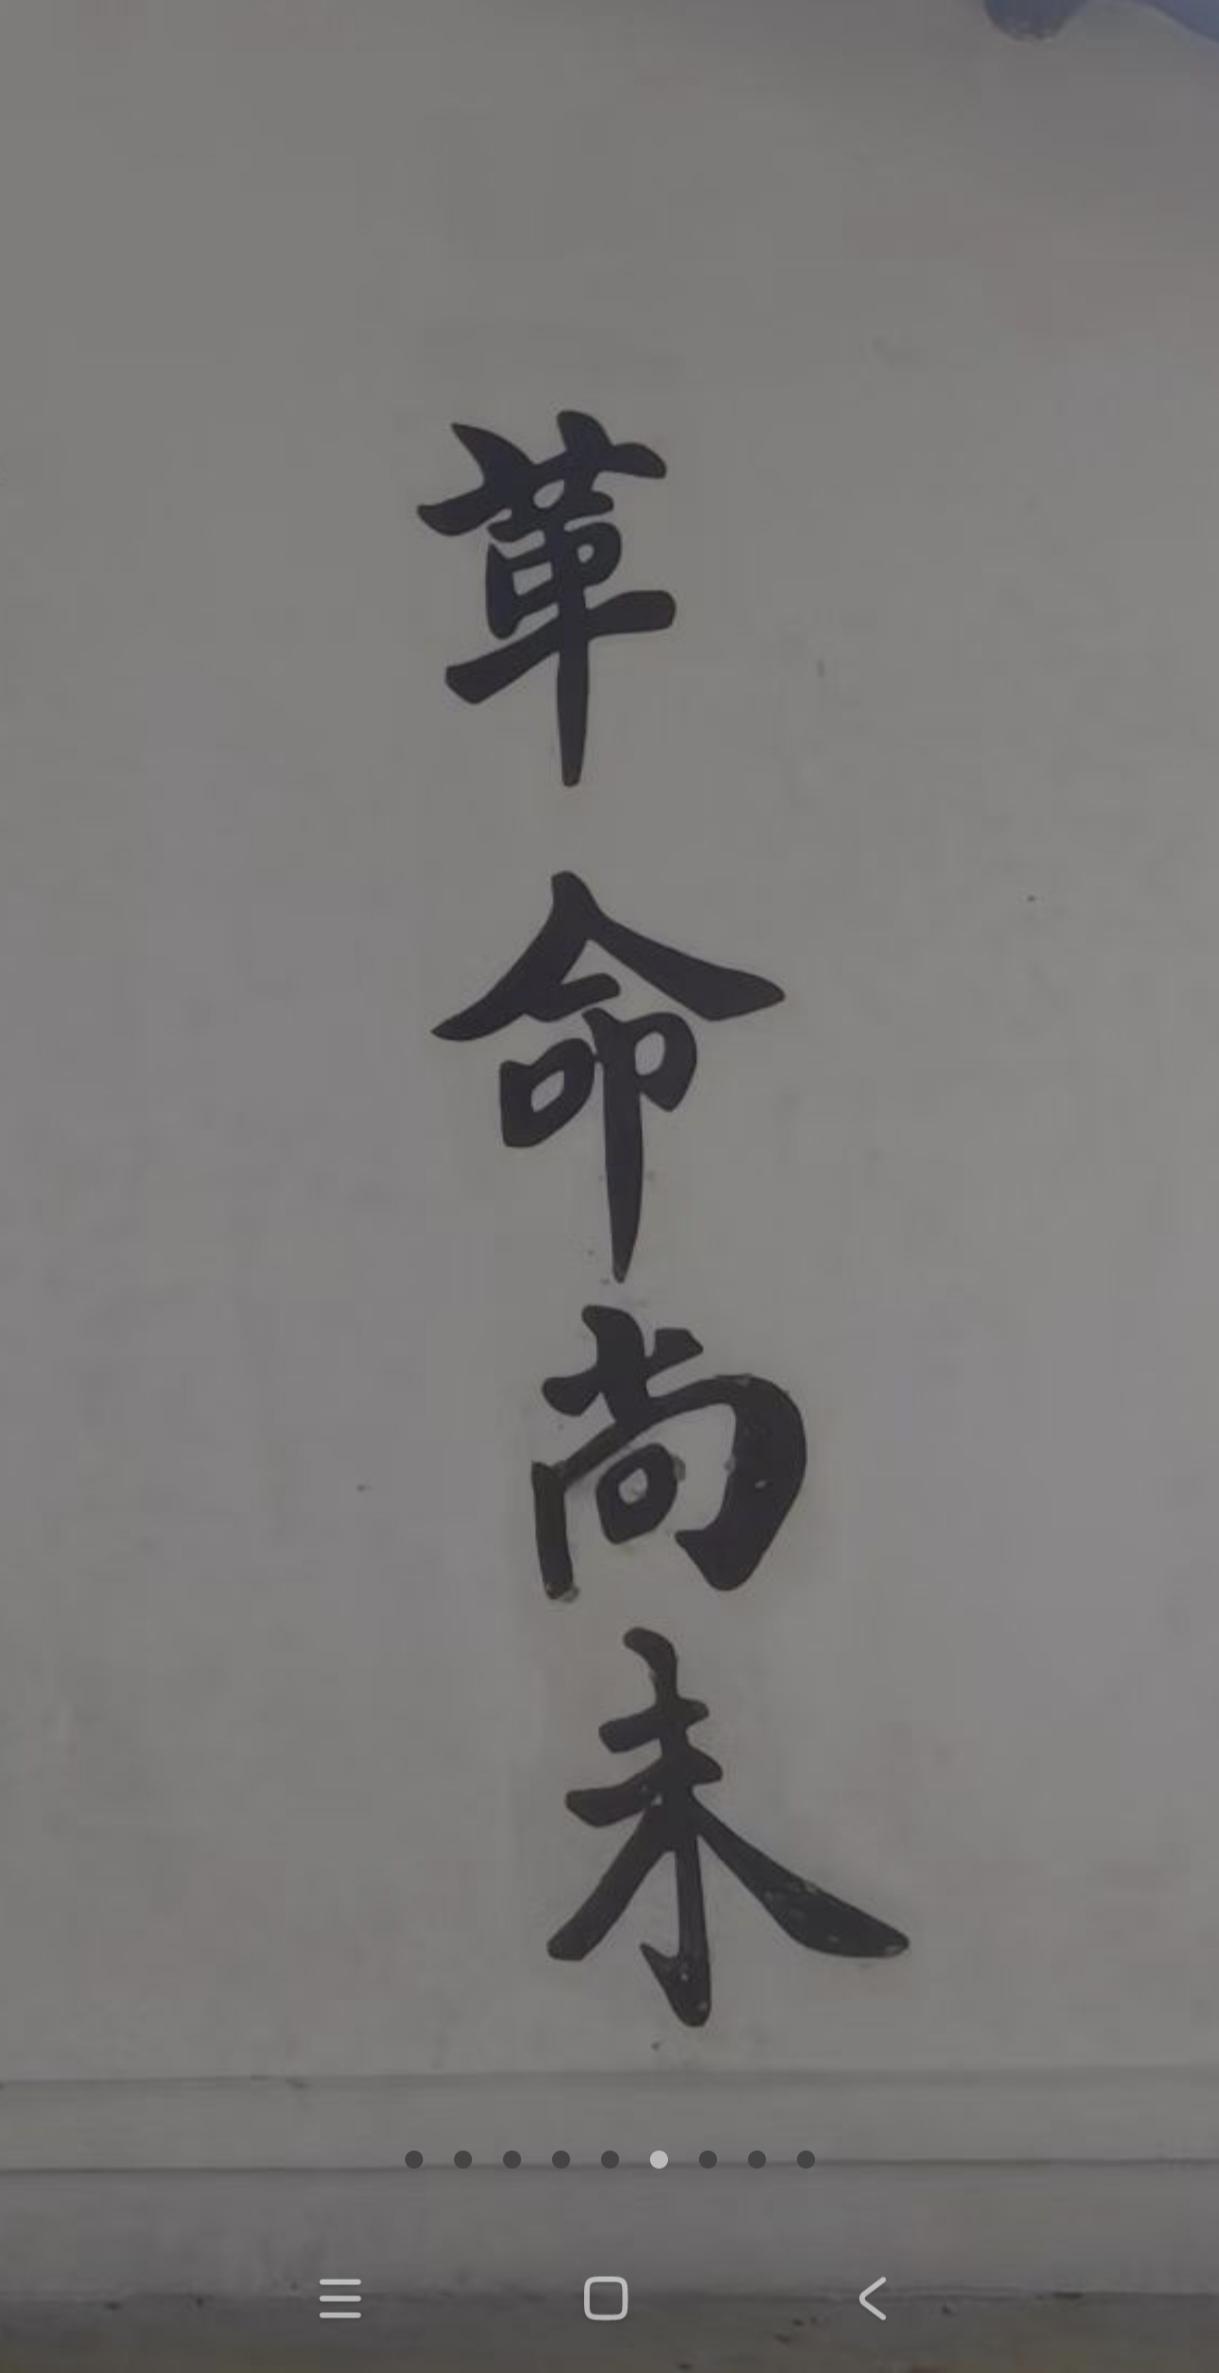 革命尚未